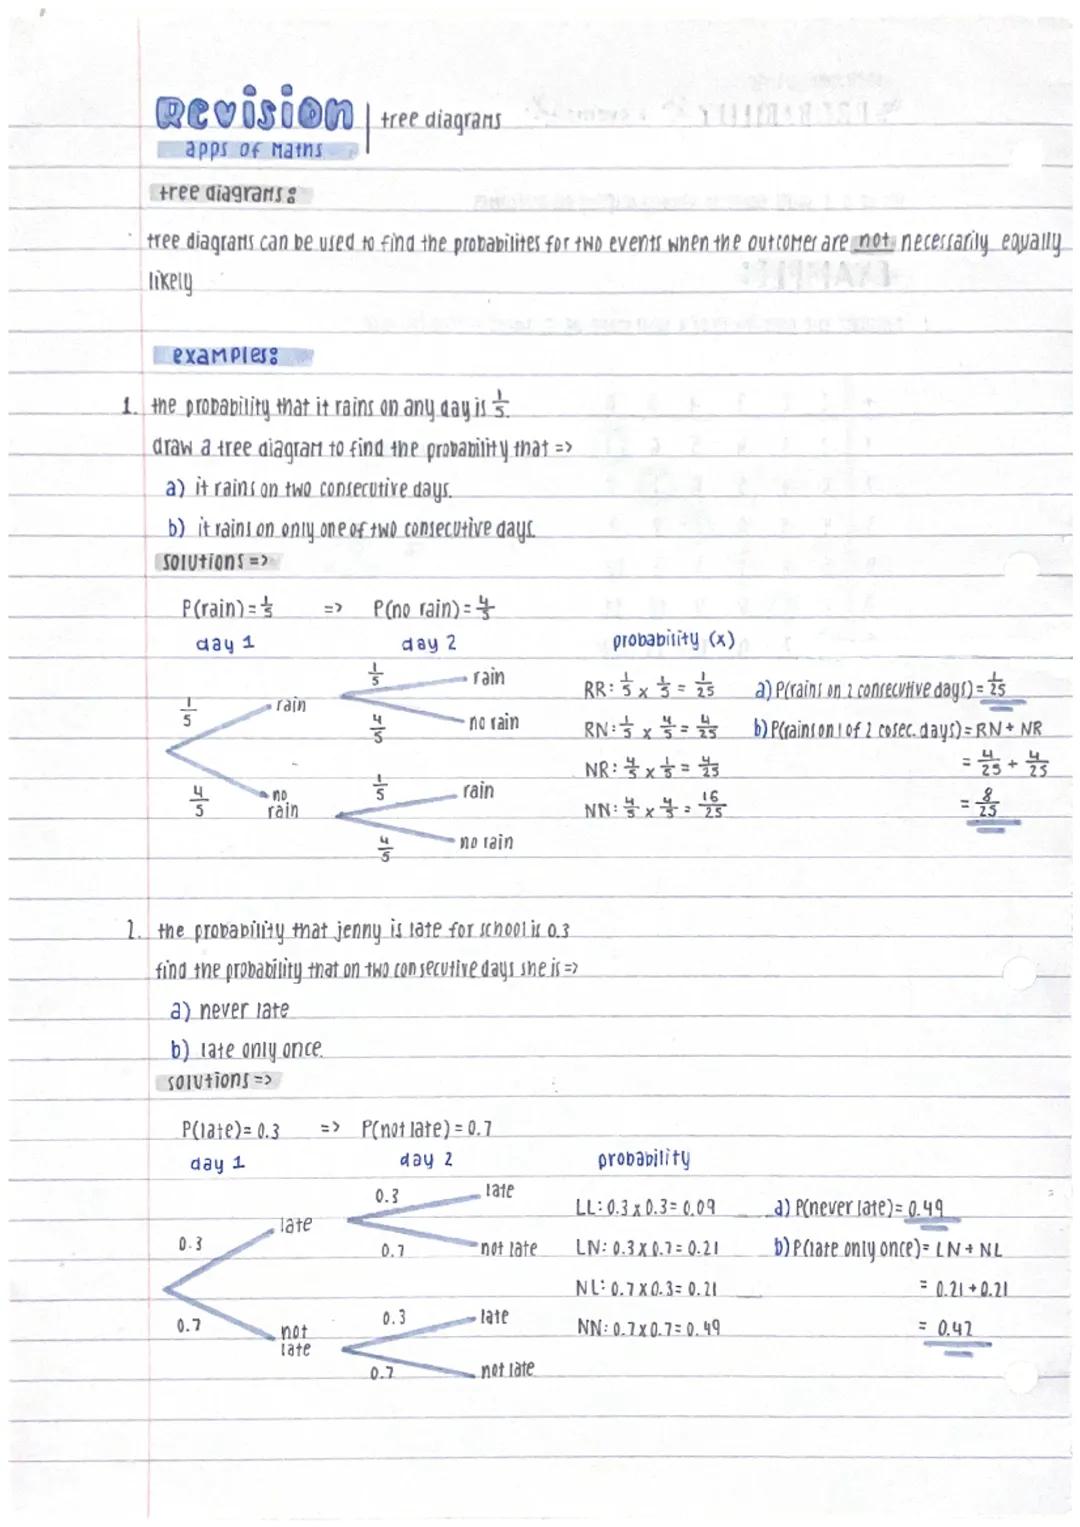 Revision | tree diagrams
apps of Maths
tree diagrams:
· tree diagrams can be used to find the probabilites for two events when the outcomes are not necessarily equally
likely
examples:
1. the probability that it rains on any day is 1/5.
draw a tree diagram to find the probability that =>
a) it rains on two consecutive days.
b) it rains on only one of two consecutive days.
solutions =>
P(rain) = 1/5 => P(no rain) = 4/5
day 1 day 2 probability (x)
1/5 rain
RR: 1/5 x 1/5 = 1/25 a) P(rains on 2 consecutive days) = 1/25
1/5 rain
4/5 no rain
RN: 1/5 x 4/5 = 4/25 b) P(rains on 1 of 2 cosec. days) = RN + NR
NR: 4/5 x 1/5 = 4/25 = 4/25 + 4/25
4/5 no rain
1/5 rain
NN: 4/5 x 4/5 = 16/25 = 8/25
4/5 no rain
2. the probability that jenny is late for school is 0.3
find the probability that on two consecutive days she is =>
a) never late
b) late only once.
solutions =>
P(late) = 0.3 => P(not late) = 0.7
day 1 day 2 probability
0.3 late
LL: 0.3 x 0.3 = 0.09 a) P(never late) = 0.49
0.3 late
0.7 not late
LN: 0.3 x 0.7 = 0.21 b) P(late only once) = LN + NL
NL: 0.7 x 0.3 = 0.21 = 0.21 + 0.21
0.7 not late
0.3 late
NN: 0.7 x 0.7 = 0.49 = 0.42
0.7 not late